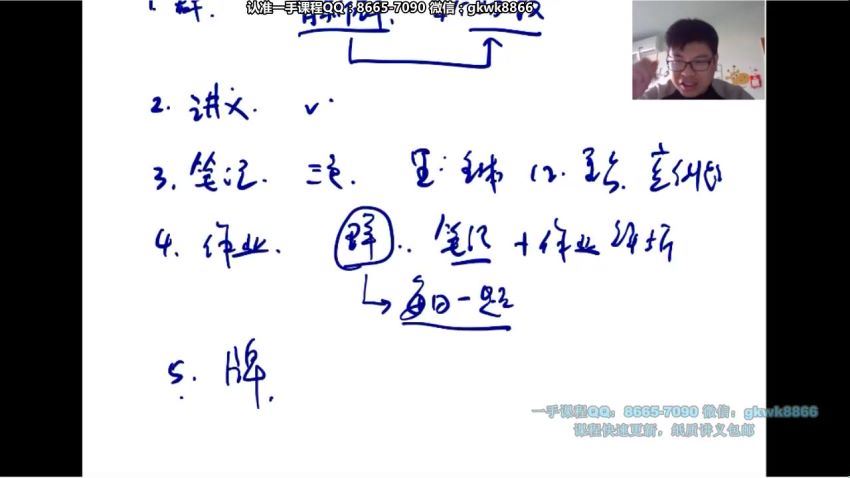 认准一手课程QQ：8665-7090 微信：gkwk8866
1 群.
2. 讲义. v
3. 笔记. 三色. 黑:
4. 作业. 群.. 笔记 + 作业
每日一题
5. 牌
一手课程QQ：8665-7090 微信：gkwk8866
课程快速更新，纸质讲义包邮